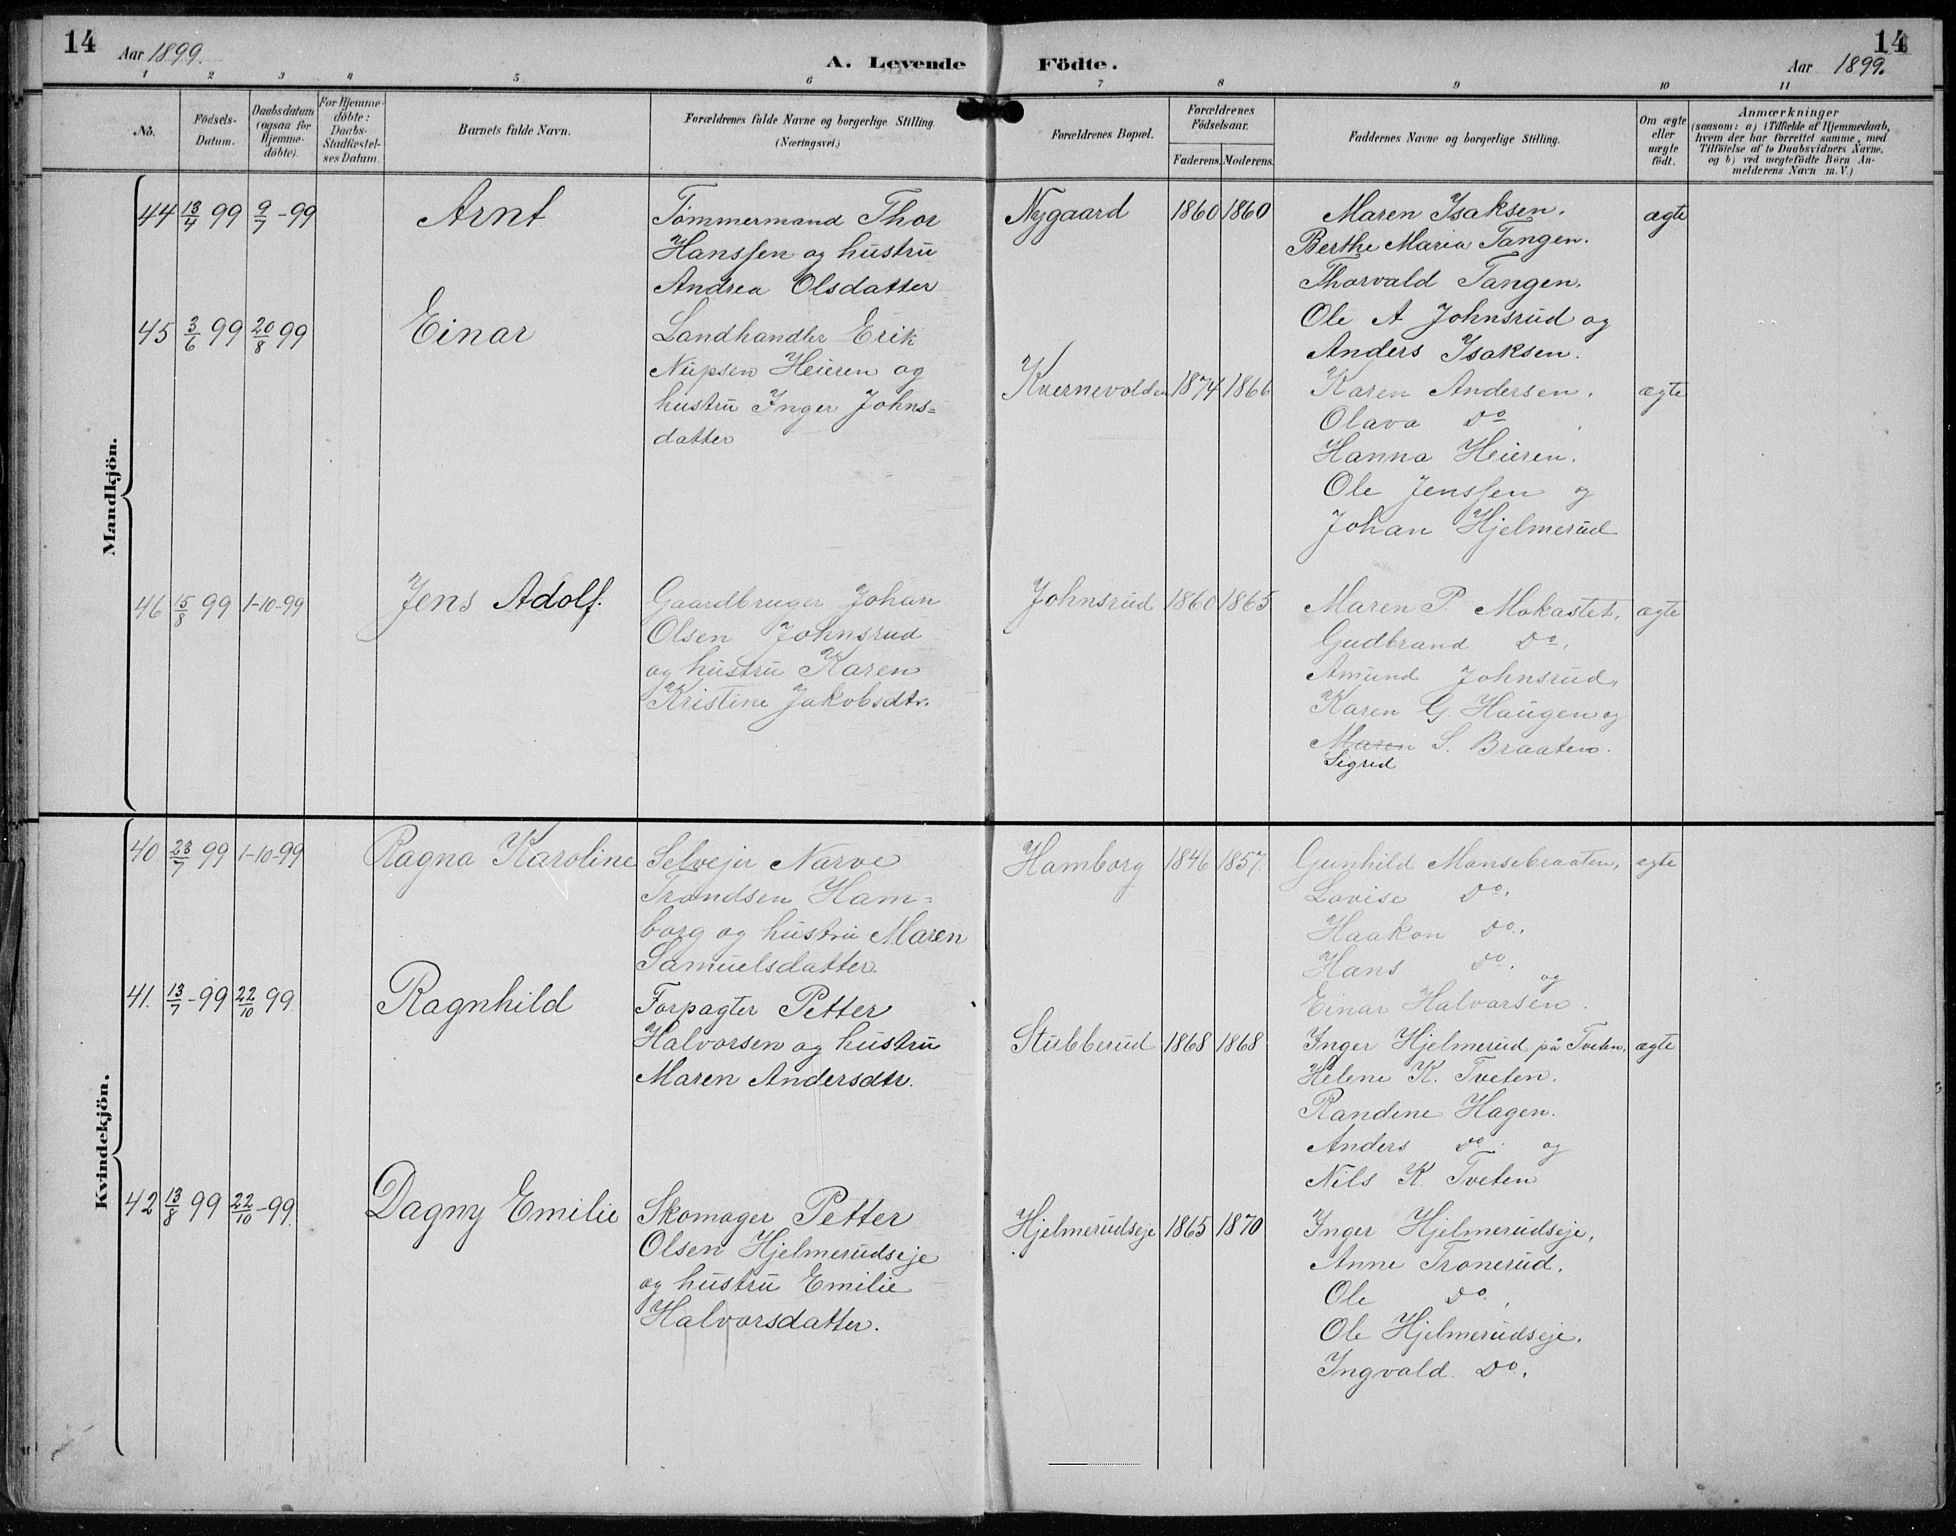 14
Aar 1899.
A. Levende Födte.
Aar 1899.
14
1 2 3 4 5 6 7 8 9 10 11
No.
Födsels-Datum.
Daabsdatum (ogsaa for Hjemme-döbte).
For Hjemme-döbte: Daabs-Stadfæstel-ses Datum.
Barnets fulde Navn.
Forældrenes fulde Navne og borgerlige Stilling (Næringsvei.)
Forældrenes Bopæl.
Forældrenes Födselsaar.
Faderens. Moderens.
Faddernes Navne og borgerlige Stilling.
Om ægte eller uægte födt.
Anmærkninger
(saasom: a) i Tilfælde af Hjemmedaab, hvem der har forrettet samme, med Tilföielse af to Daabsvidners Navne. og b) ved uægtefödte Börn An-melderens Navn m. V.)
Mandkjön.
44 13/4 99 9/7 -99 Arnt
Tömmermand Thor
Hanssen og hustru
Andrea Olsdatter
Nygaard 1860 1860
Maren Isaksen.
Berthe Maria Tangen.
Thorvald Tangen.
Ole A Johnsrud og
Anders Isaksen.
ægte
45 3/6 99 20/8 99 Einar
Landhandler Erik
Nupsen Heieren og
hustru Inger Johns=
datter
Kvernevolden 1874 1866
Karen Andersen.
Olava Do
Hanna Heieren.
Ole Jenssen og
Johan Hjelmerud
ægte
46 15/8 99 1-10-99 Jens Adolf.
Gaardbruger Johan
Olsen Johnsrud
og hustru Karen
Kristine Jakobsdtr.
Johnsrud 1860 1865
Maren P. Mokastet.
Gudbrand Do.
Amund Johnsrud,
Karen G. Haugen og
Maren S. Braaten.
Sigrid
ægte
Kvindekjön.
40 23/7 99 1-10-99 Ragna Karoline
Selvejer Narve
Trondsen Ham=
borg og hustru Maren
Samuelsdatter.
Hamborg 1846 1857.
Gunhild Monsebraaten,
Lovise Do.
Haakon Do.
Hans Do. og
Einar Halvorsen.
ægte
41. 13/7 -99 22/10 99. Ragnhild
Forpagter Petter
Halvorsen og hustru
Maren Andersdtr.
Stubberud 1868 1868
Inger Hjelmerud på Tveten,
Helene K. Tveten.
Randine Hagen.
Anders Do. og
Nils K. Tveten
ægte
42 13/8 99 22/10 -99. Dagny Emilie
Skomager Petter
Olsen Hjelmerudseje
og hustru Emilie
Halvorsdatter.
Hjelmerudseje 1865 1870
Inger Hjelmerudseje,
Anne Tronerud.
Ole Do.
Ole Hjelmerudseje.
Ingvald Do.